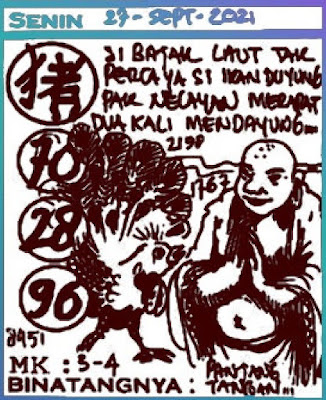 SENIN 27-SEPT-2021
猪
SI BAJAK LAUT TAK
PERCAYA SI IKAN DUYUNG
PAK NELAYAN MERAPAT
DUA KALI MENDAYUNG...
2198
70
28
96
MK : 3-4
BINATANGNYA :
PANTANG